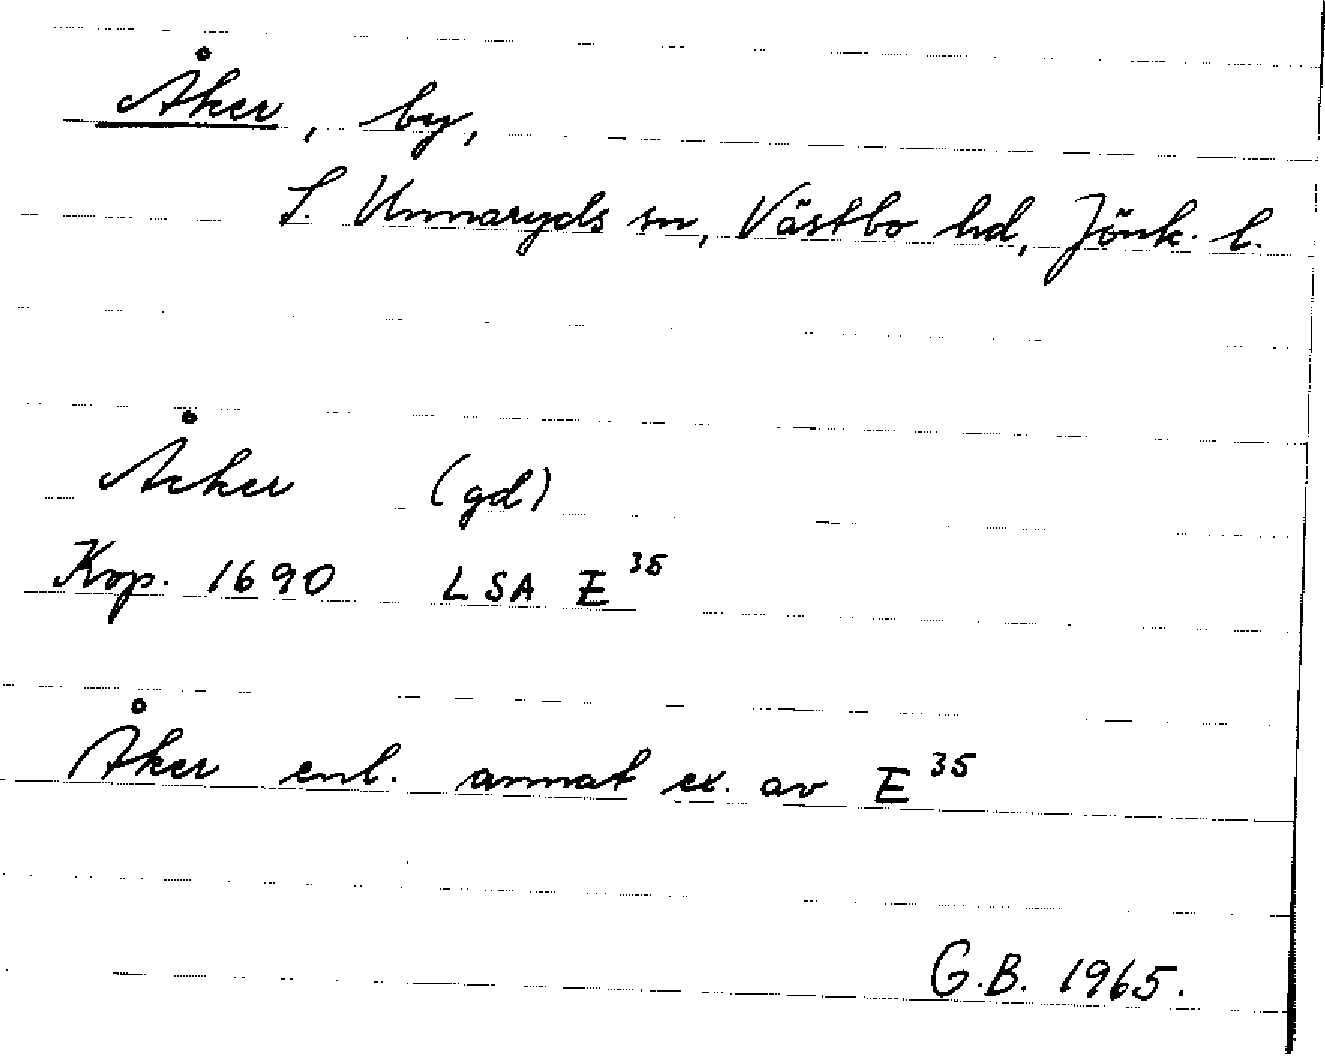 Åker, by,
S. Unnaryds sn, Västbo hd, Jönk. l.
Åcker (gd)
Kop. 1690 LSA E 35
Åker enl. annat ex. av E 35
G.B. 1965.